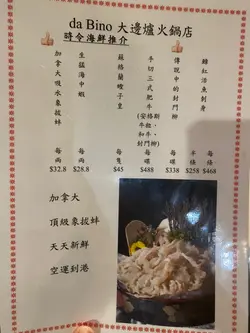 da Bino 大邊爐火鍋店
時令海鮮推介
加拿大吸水象拔蚌
每両
$32.8
生猛海中蝦
每両
$28.8
蘇格蘭蟶子皇
每隻
$45
手切三式肥牛
(安格斯
牛柏,
和牛,
封門柳)
每碟
$488
傳說中的封門柳
每碟
$338
紅活魚刺身
半條
$258
每條
$468
加拿大
頂級象拔蚌
天天新鮮
空運到港